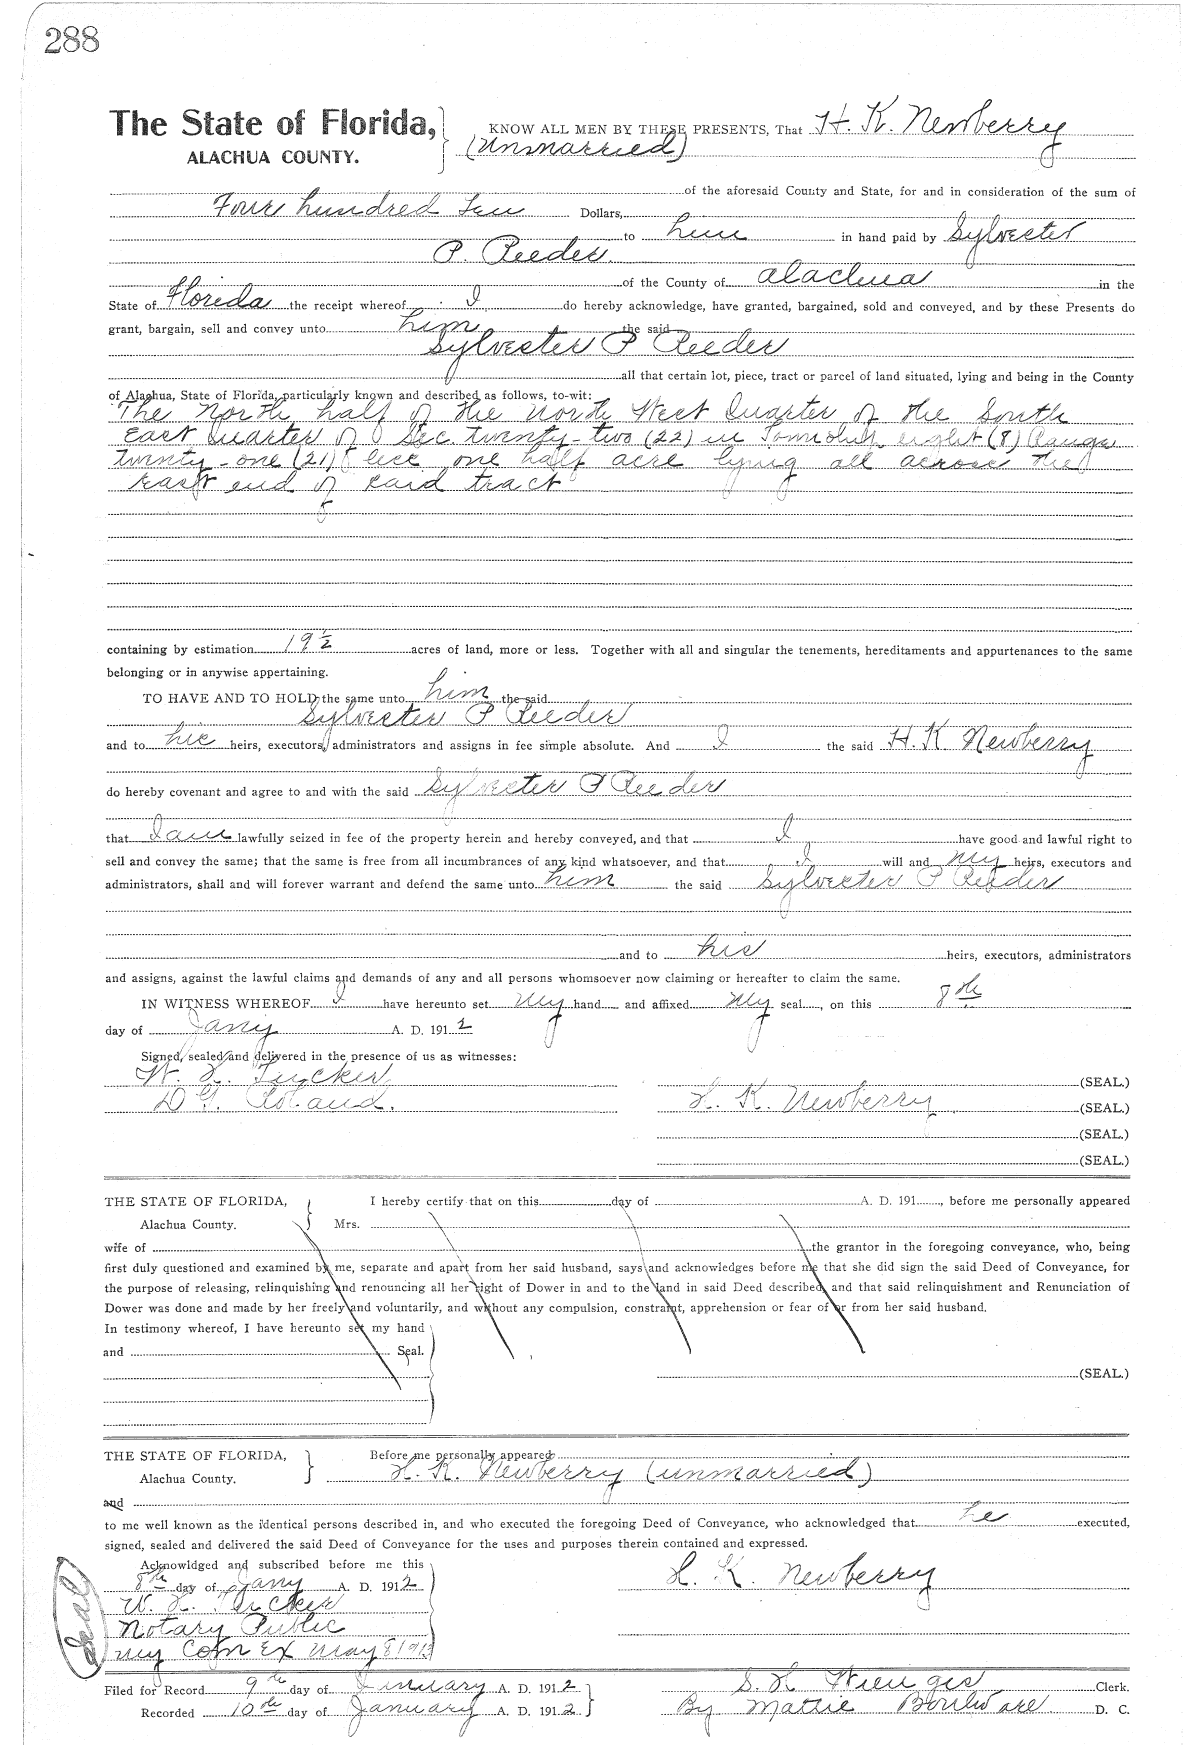 288
The State of Florida, KNOW ALL MEN BY THESE PRESENTS, That H. K. Newberry
ALACHUA COUNTY. (Unmarried)
of the aforesaid County and State, for and in consideration of the sum of
Four hundred Ten Dollars,
to him in hand paid by Sylvester
P. Reeder
of the County of Alachua in the
State of Florida the receipt whereof I do hereby acknowledge, have granted, bargained, sold and conveyed, and by these Presents do
grant, bargain, sell and convey unto him the said
Sylvester P Reeder
all that certain lot, piece, tract or parcel of land situated, lying and being in the County
of Alachua, State of Florida, particularly known and described as follows, to-wit:
The North half of the North West Quarter of the South
East Quarter of Sec. twenty-two (22) in Township eight (8) Range
twenty-one (21) less one half acre lying all across the
East end of said tract
containing by estimation 19½ acres of land, more or less. Together with all and singular the tenements, hereditaments and appurtenances to the same
belonging or in anywise appertaining.
TO HAVE AND TO HOLD the same unto him the said
Sylvester P Reeder
and to his heirs, executors, administrators and assigns in fee simple absolute. And I the said H. K Newberry
do hereby covenant and agree to and with the said Sylvester P Reeder
that I am lawfully seized in fee of the property herein and hereby conveyed, and that I have good and lawful right to
sell and convey the same; that the same is free from all incumbrances of any kind whatsoever, and that I will and my heirs, executors and
administrators, shall and will forever warrant and defend the same unto him the said Sylvester P Reeder
and to his heirs, executors, administrators
and assigns, against the lawful claims and demands of any and all persons whomsoever now claiming or hereafter to claim the same.
IN WITNESS WHEREOF I have hereunto set my hand and affixed my seal, on this 8th
day of Jany A. D. 1912
Signed, sealed and delivered in the presence of us as witnesses:
W. L. Tucker (SEAL.)
D G. Roland. H. K. Newberry (SEAL.)
(SEAL.)
(SEAL.)
THE STATE OF FLORIDA, I hereby certify that on this day of A. D. 191, before me personally appeared
Alachua County. Mrs.
wife of the grantor in the foregoing conveyance, who, being
first duly questioned and examined by me, separate and apart from her said husband, says and acknowledges before me that she did sign the said Deed of Conveyance, for
the purpose of releasing, relinquishing and renouncing all her right of Dower in and to the land in said Deed described, and that said relinquishment and Renunciation of
Dower was done and made by her freely and voluntarily, and without any compulsion, constraint, apprehension or fear of or from her said husband.
In testimony whereof, I have hereunto set my hand
and Seal.
(SEAL.)
THE STATE OF FLORIDA, Before me personally appeared
Alachua County. H. K. Newberry (unmarried)
and
to me well known as the identical persons described in, and who executed the foregoing Deed of Conveyance, who acknowledged that he executed,
signed, sealed and delivered the said Deed of Conveyance for the uses and purposes therein contained and expressed.
Acknowldged and subscribed before me this
8th day of Jany A. D. 1912 H. K. Newberry
W. L. Tucker
Notary Public
Seal
my Com Ex May 8
Filed for Record 9th day of January A. D. 1912 S. H Wienges Clerk.
Recorded 10th day of January A. D. 1912 By Mattie Boulware D. C.